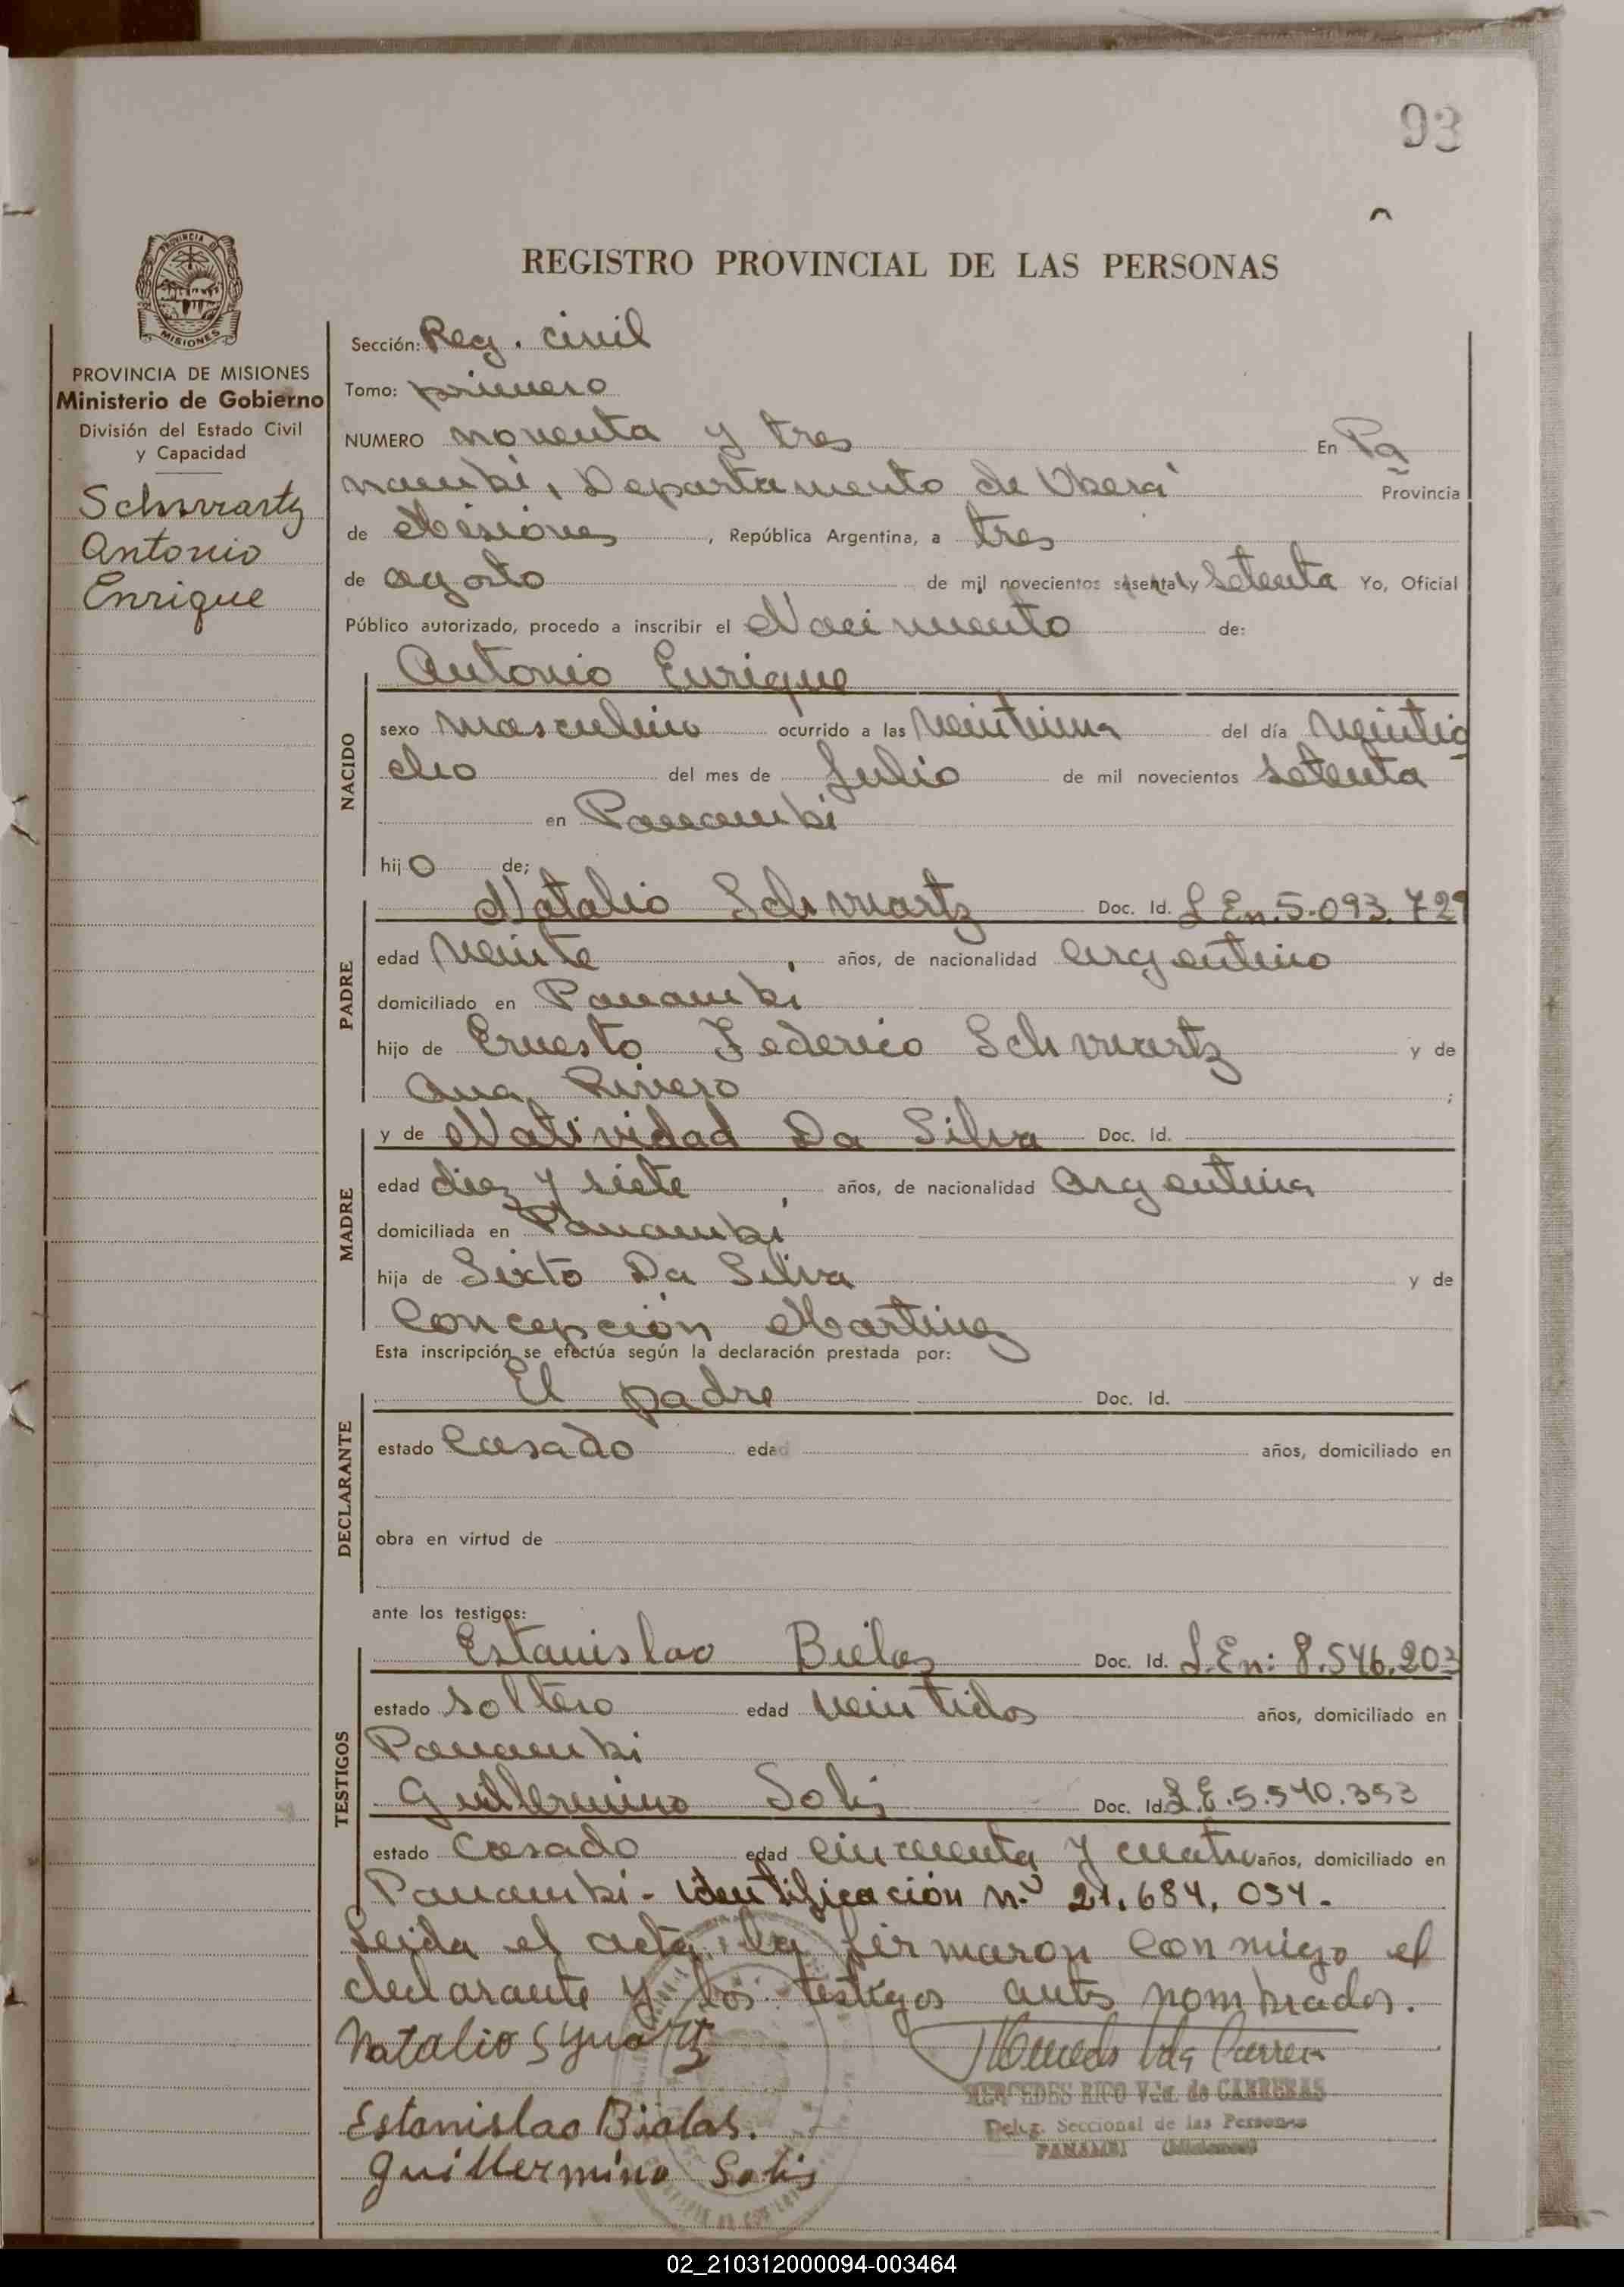 93
PROVINCIA DE
MISIONES
REGISTRO PROVINCIAL DE LAS PERSONAS
PROVINCIA DE MISIONES
Ministerio de Gobierno
División del Estado Civil
y Capacidad
Schwartz
Antonio
Enrique
Sección: Reg. civil
Tomo: primero
NUMERO noventa y tres En Pa
nambi, Departamento de Oberá Provincia
de Misiones, República Argentina, a tres
de agosto de mil novecientos sesenta y setenta Yo, Oficial
Público autorizado, procedo a inscribir el Nacimiento de:
NACIDO
Antonio Enrique
sexo masculino ocurrido a las veintiuna del día veintio
cho del mes de Julio de mil novecientos setenta
en Panambi
hijo de;
PADRE
Natalio Schwartz Doc. Id. L.En. 5.093.729
edad veinte, años, de nacionalidad argentino
domiciliado en Panambi
hijo de Ernesto Federico Schwartz y de
Ana Rivero ;
MADRE
y de Natividad Da Silva Doc. Id.
edad diez y siete, años, de nacionalidad argentina
domiciliada en Panambi
hija de Sixto Da Silva y de
Concepción Martinez
Esta inscripción se efectúa según la declaración prestada por:
DECLARANTE
El padre Doc. Id.
estado Casado edad años, domiciliado en
obra en virtud de
ante los testigos:
TESTIGOS
Estanislao Bielas Doc. Id. L.En: 8.546.203
estado soltero edad veintidos años, domiciliado en
Panambi
Guillermino Solis Doc. Id. L.E. 5.540.353
estado Casado edad cincuenta y cuatro años, domiciliado en
Panambi - identificación n.º 21.684.034.-
Leida el acta, la firmaron conmigo el
declarante y los testigos antes nombrados.
Natalio
MERCEDES RICO Vda. de CARRERAS
Deleg. Seccional de las Personas
PANAMBI (Misiones)
Estanislao Bialas.
Guillermino Solis
02_210312000094-003464